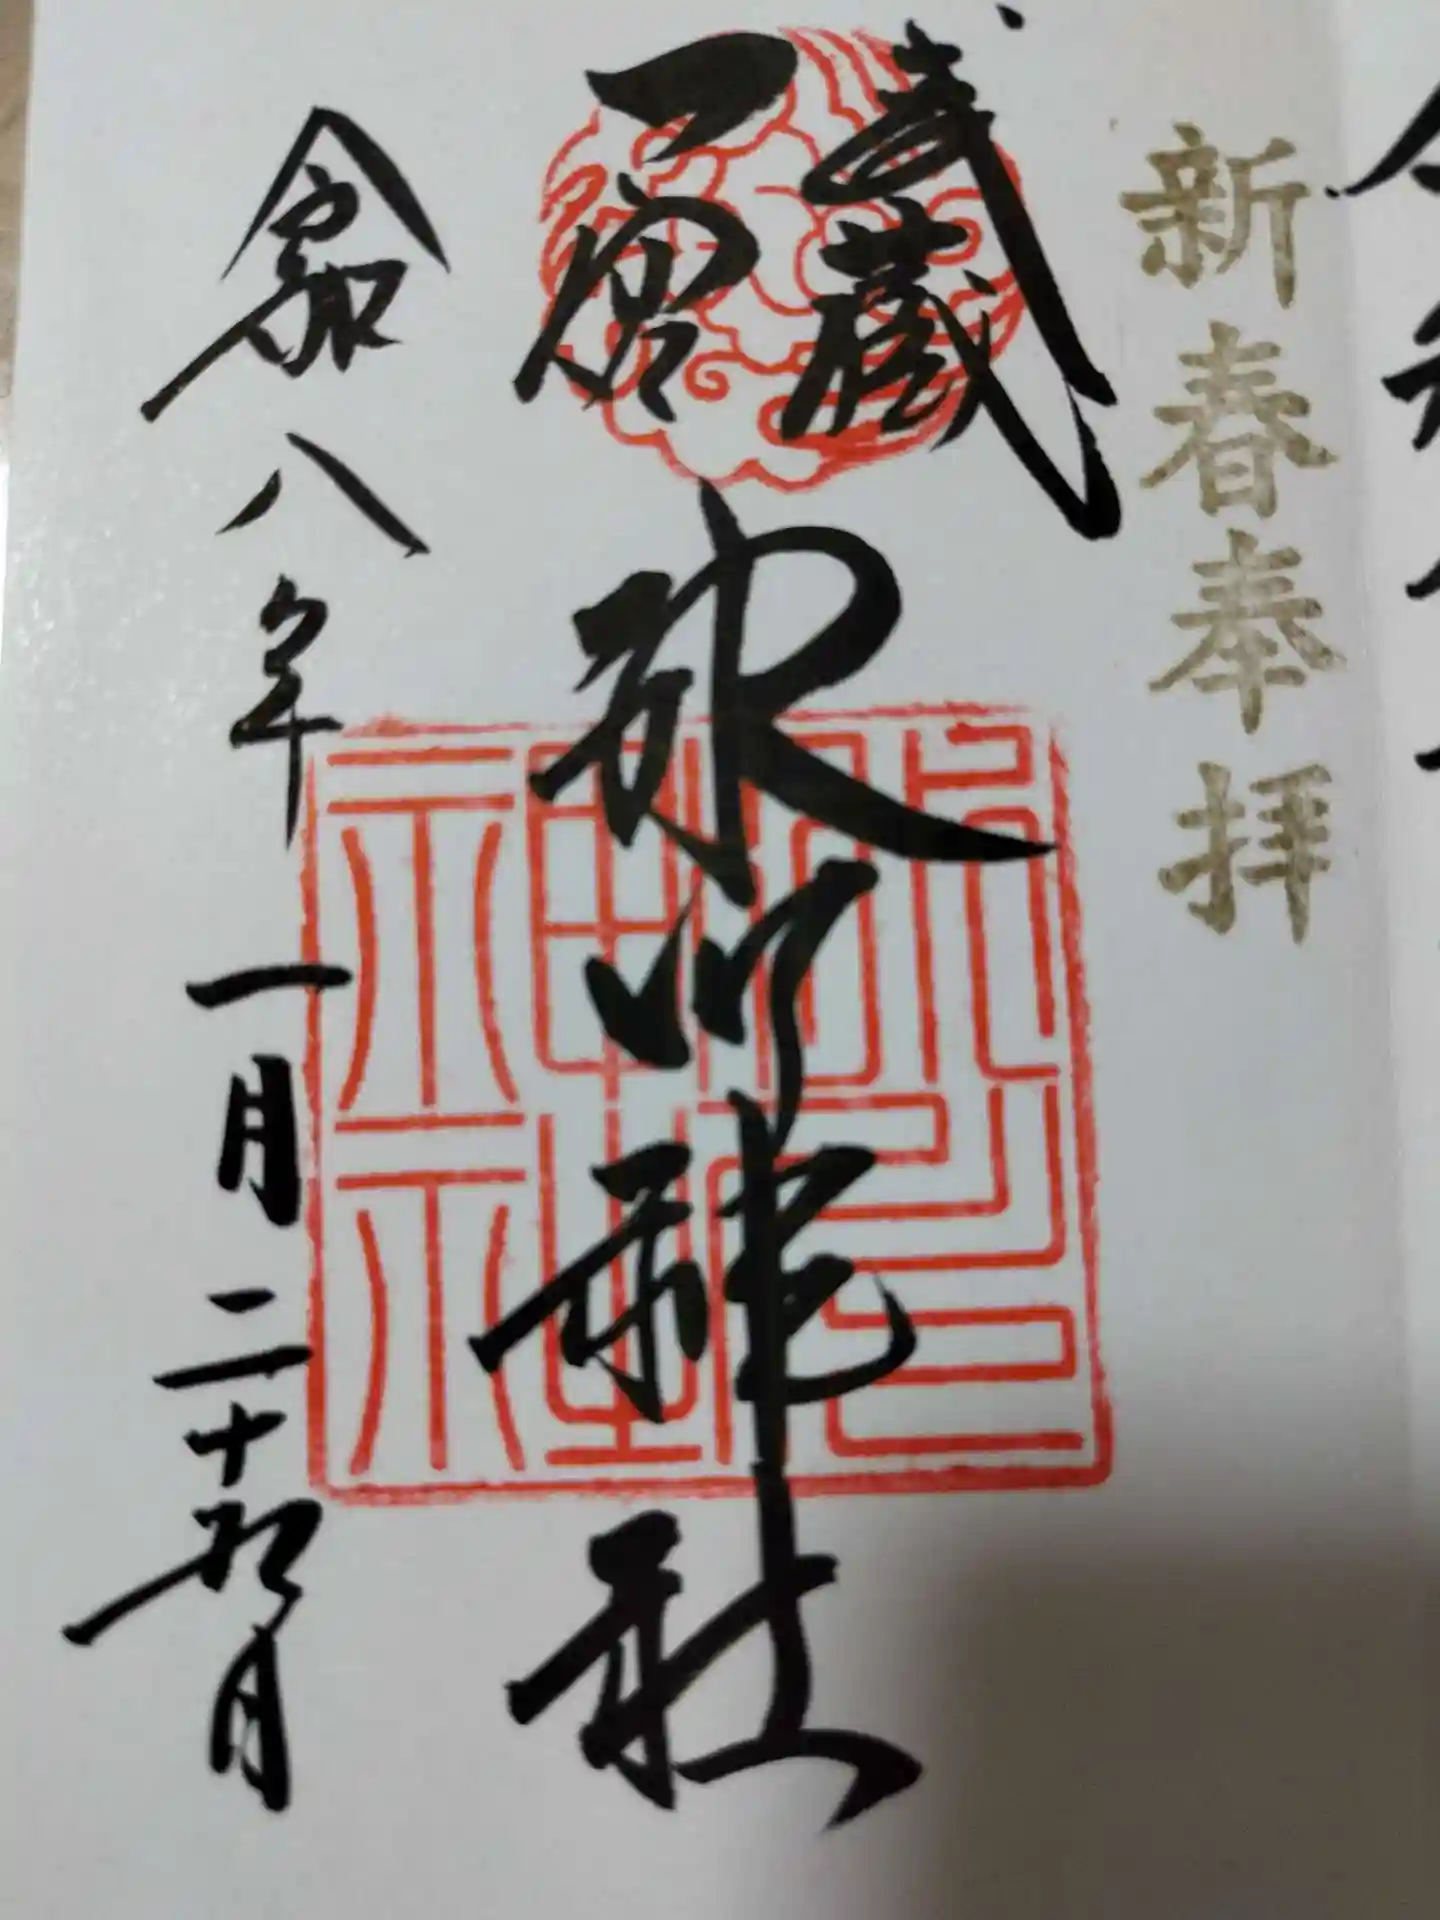 新春奉拝
武蔵
一宮
氷川神社
令和八年一月二十九日